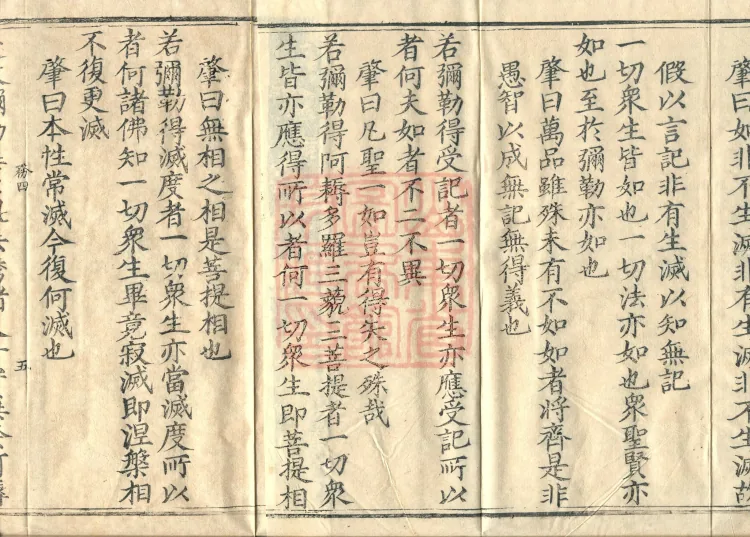 肇曰如非不生滅非有生滅非不生滅故
假以言記非有生滅以知無記
一切衆生皆如也一切法亦如也衆聖賢亦
如也至於彌勒亦如也
肇曰萬品雖殊未有不如如者將齊是非
愚智以成無記無得義也
若彌勒得受記者一切衆生亦應受記所以
者何夫如者不二不異
肇曰凡聖一如豈有得失之殊哉
若彌勒得阿耨多羅三藐三菩提者一切衆
生皆亦應得所以者何一切衆生即菩提相
肇曰無相之相是菩提相也
若彌勒得滅度者一切衆生亦當滅度所以
者何諸佛知一切衆生畢竟寂滅即涅槃相
不復更滅
肇曰本性常滅今復何滅也
四
五